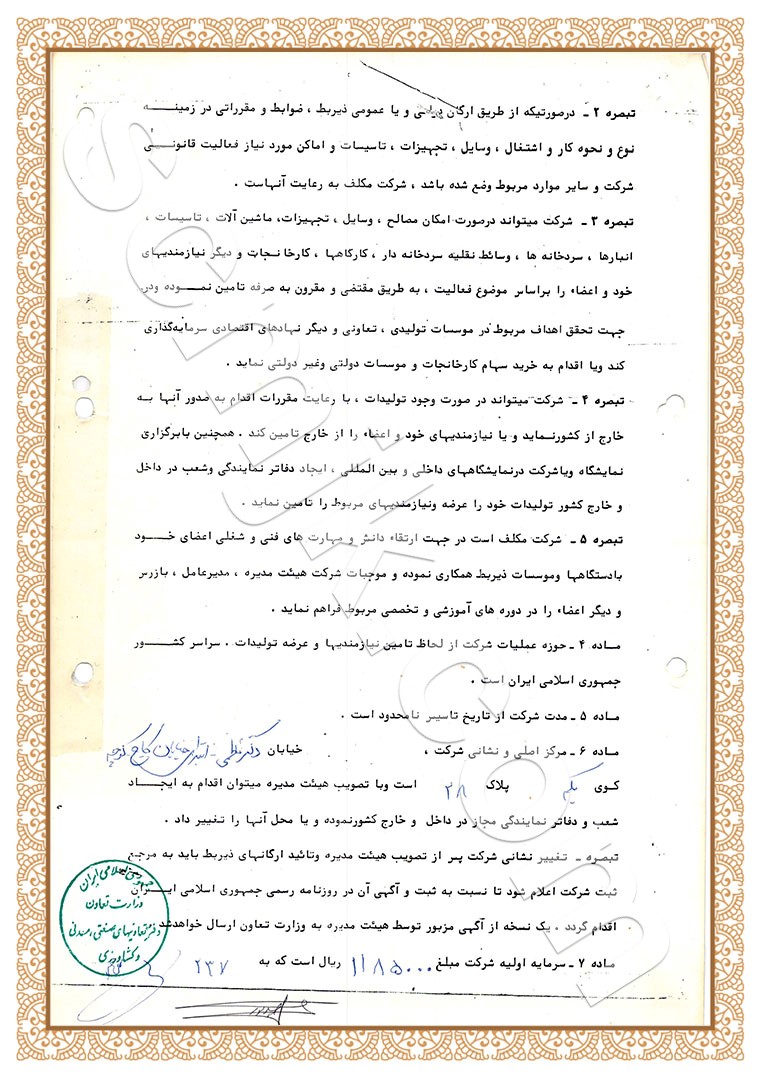 تبصره ۲ ـ درصورتیکه از طریق ارکان دولتی و یا عمومی ذیربط ، ضوابط و مقرراتی در زمینه
نوع و نحوه کار و اشتغال ، وسایل ، تجهیزات ، تاسیسات و اماکن مورد نیاز فعالیت قانونی
شرکت و سایر موارد مربوط وضع شده باشد ، شرکت مکلف به رعایت آنهاست .
تبصره ۳ ـ شرکت میتواند درصورت امکان مصالح ، وسایل ، تجهیزات، ماشین آلات ، تاسیسات ،
انبارها ، سردخانه ها ، وسائط نقلیه سردخانه دار ، کارکاهها ، کارخانجات و دیگر نیازمندیهای
خود و اعضاء را براساس موضوع فعالیت ، به طریق مقتضی و مقرون به صرفه تامین نموده ودر
جهت تحقق اهداف مربوط در موسسات تولیدی ، تعاونی و دیگر نهادهای اقتصادی سرمایه‌گذاری
کند ویا اقدام به خرید سهام کارخانجات و موسسات دولتی وغیر دولتی نماید .
تبصره ۴ ـ شرکت میتواند در صورت وجود تولیدات ، با رعایت مقررات اقدام به صدور آنها به
خارج از کشورنماید و یا نیازمندیهای خود و اعضاء را از خارج تامین کند . همچنین بابرگزاری
نمایشگاه ویاشرکت درنمایشگاههای داخلی و بین المللی ، ایجاد دفاتر نمایندگی وشعب در داخل
و خارج کشور تولیدات خود را عرضه ونیازمندیهای مربوط را تامین نماید .
تبصره ۵ ـ شرکت مکلف است در جهت ارتقاء دانش و مهارت های فنی و شغلی اعضای خود
بادستگاهها وموسسات ذیربط همکاری نموده و موجبات شرکت هیئت مدیره ، مدیرعامل ، بازرس
و دیگر اعضاء را در دوره های آموزشی و تخصصی مربوط فراهم نماید .
ماده ۴ ـ حوزه عملیات شرکت از لحاظ تامین نیازمندیها و عرضه تولیدات . سراسر کشور
جمهوری اسلامی ایران است .
ماده ۵ ـ مدت شرکت از تاریخ تاسیس نامحدود است .
ماده ۶ ـ مرکز اصلی و نشانی شرکت ، خیابان دکتر فاطمی ـ ابتدای خیابان کاخ کوچه
کوی یکم پلاک ۲۸ است وبا تصویب هیئت مدیره میتوان اقدام به ایجاد
شعب و دفاتر نمایندگی مجاز در داخل و خارج کشورنموده و یا محل آنها را تغییر داد .
تبصره ـ تغییر نشانی شرکت پس از تصویب هیئت مدیره وتائید ارگانهای ذیربط باید به مرجع
ثبت شرکت اعلام شود تا نسبت به ثبت و آگهی آن در روزنامه رسمی جمهوری اسلامی ایران
اقدام گردد . یک نسخه از آگهی مزبور توسط هیئت مدیره به وزارت تعاون ارسال خواهدشد .
ماده ۷ ـ سرمایه اولیه شرکت مبلغ ۱۱۸۵۰۰۰ ریال است که به ۲۳۷
جمهوری اسلامی ایران
وزارت تعاون
دفتر تعاونیهای صنعتی، معدنی
و کشاورزی